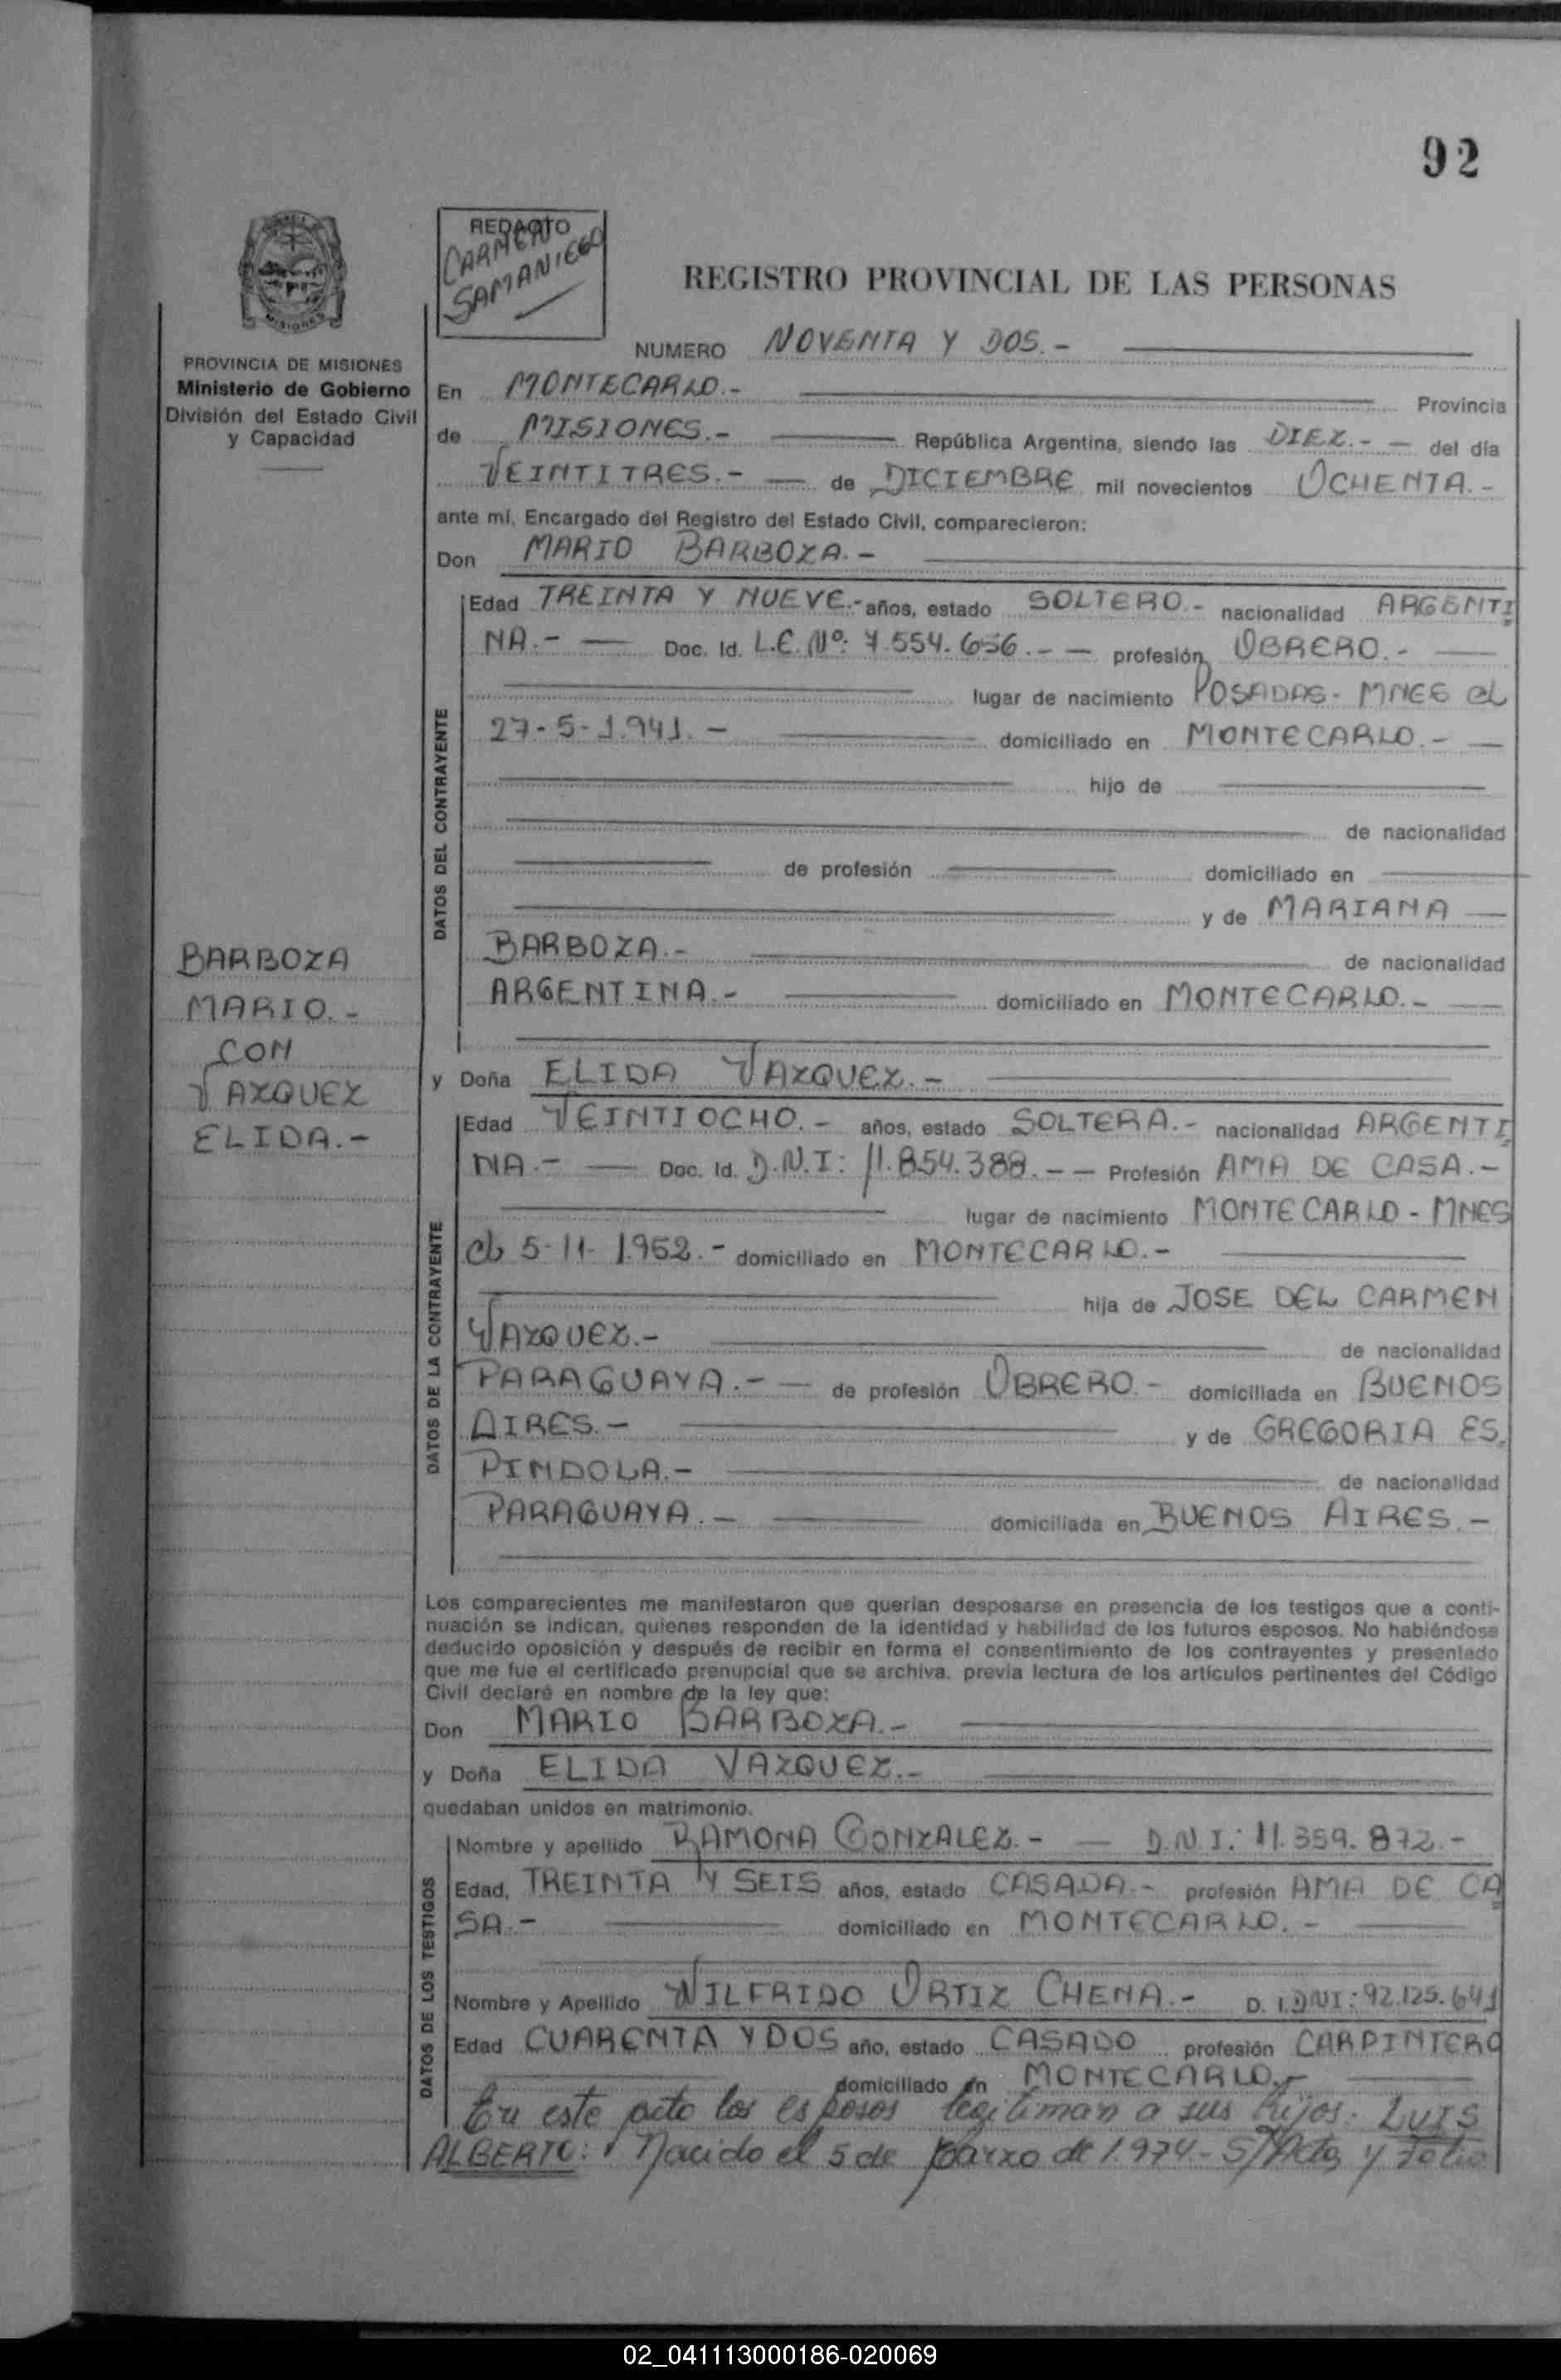 92
REDACTO
CARMELO
SAMANIEGO
REGISTRO PROVINCIAL DE LAS PERSONAS
MISIONES
NUMERO NOVENTA Y DOS.-
PROVINCIA DE MISIONES
Ministerio de Gobierno
División del Estado Civil
y Capacidad
En MONTECARLO.- Provincia
de MISIONES.- República Argentina, siendo las DIEZ.- - del día
VEINTITRES.- - de DICIEMBRE mil novecientos OCHENTA.-
ante mí, Encargado del Registro del Estado Civil, comparecieron:
Don MARIO BARBOZA.-
DATOS DEL CONTRAYENTE
Edad TREINTA Y NUEVE.- años, estado SOLTERO.- nacionalidad ARGENTI
NA.- - Doc. Id. L.E. Nº: 7.554.656.- - profesión OBRERO.- -
lugar de nacimiento POSADAS- MNES el
27-5-1.941.- domiciliado en MONTECARLO.- -
hijo de
de nacionalidad
de profesión domiciliado en
y de MARIANA
BARBOZA.- de nacionalidad
ARGENTINA.- domiciliado en MONTECARLO.-
BARBOZA
MARIO.-
CON
VAZQUEZ
ELIDA.-
y Doña ELIDA VAZQUEZ.-
DATOS DE LA CONTRAYENTE
Edad VEINTIOCHO.- años, estado SOLTERA.- nacionalidad ARGENTI
NA.- - Doc. Id. D.N.I: 11.854.388.- - Profesión AMA DE CASA.-
lugar de nacimiento MONTECARLO - MNES
el 5-11-1.952.- domiciliado en MONTECARLO.-
hija de JOSE DEL CARMEN
VAZQUEZ.- de nacionalidad
PARAGUAYA.- - de profesión OBRERO.- domiciliada en BUENOS
AIRES.- y de GREGORIA ES
PINDOLA.- de nacionalidad
PARAGUAYA.- domiciliada en BUENOS AIRES.-
Los comparecientes me manifestaron que querían desposarse en presencia de los testigos que a conti-
nuación se indican, quienes responden de la identidad y habilidad de los futuros esposos. No habiéndose
deducido oposición y después de recibir en forma el consentimiento de los contrayentes y presentado
que me fue el certificado prenupcial que se archiva, previa lectura de los artículos pertinentes del Código
Civil declaré en nombre de la ley que:
Don MARIO BARBOZA.-
y Doña ELIDA VAZQUEZ.-
quedaban unidos en matrimonio.
DATOS DE LOS TESTIGOS
Nombre y apellido RAMONA GONZALEZ.- - D.N.I.: 11.359.872.-
Edad, TREINTA Y SEIS años, estado CASADA.- profesión AMA DE CA
SA.- domiciliado en MONTECARLO.-
Nombre y Apellido WILFRIDO ORTIZ CHENA.- D. I. DNI: 92.125.641
Edad CUARENTA Y DOS año, estado CASADO profesión CARPINTERO
domiciliado en MONTECARLO.-
En este acto los esposos legitiman a sus hijos: LUIS
ALBERTO: Nacido el 5 de marzo de 1.974.- S/Acta y Folio
02_041113000186-020069